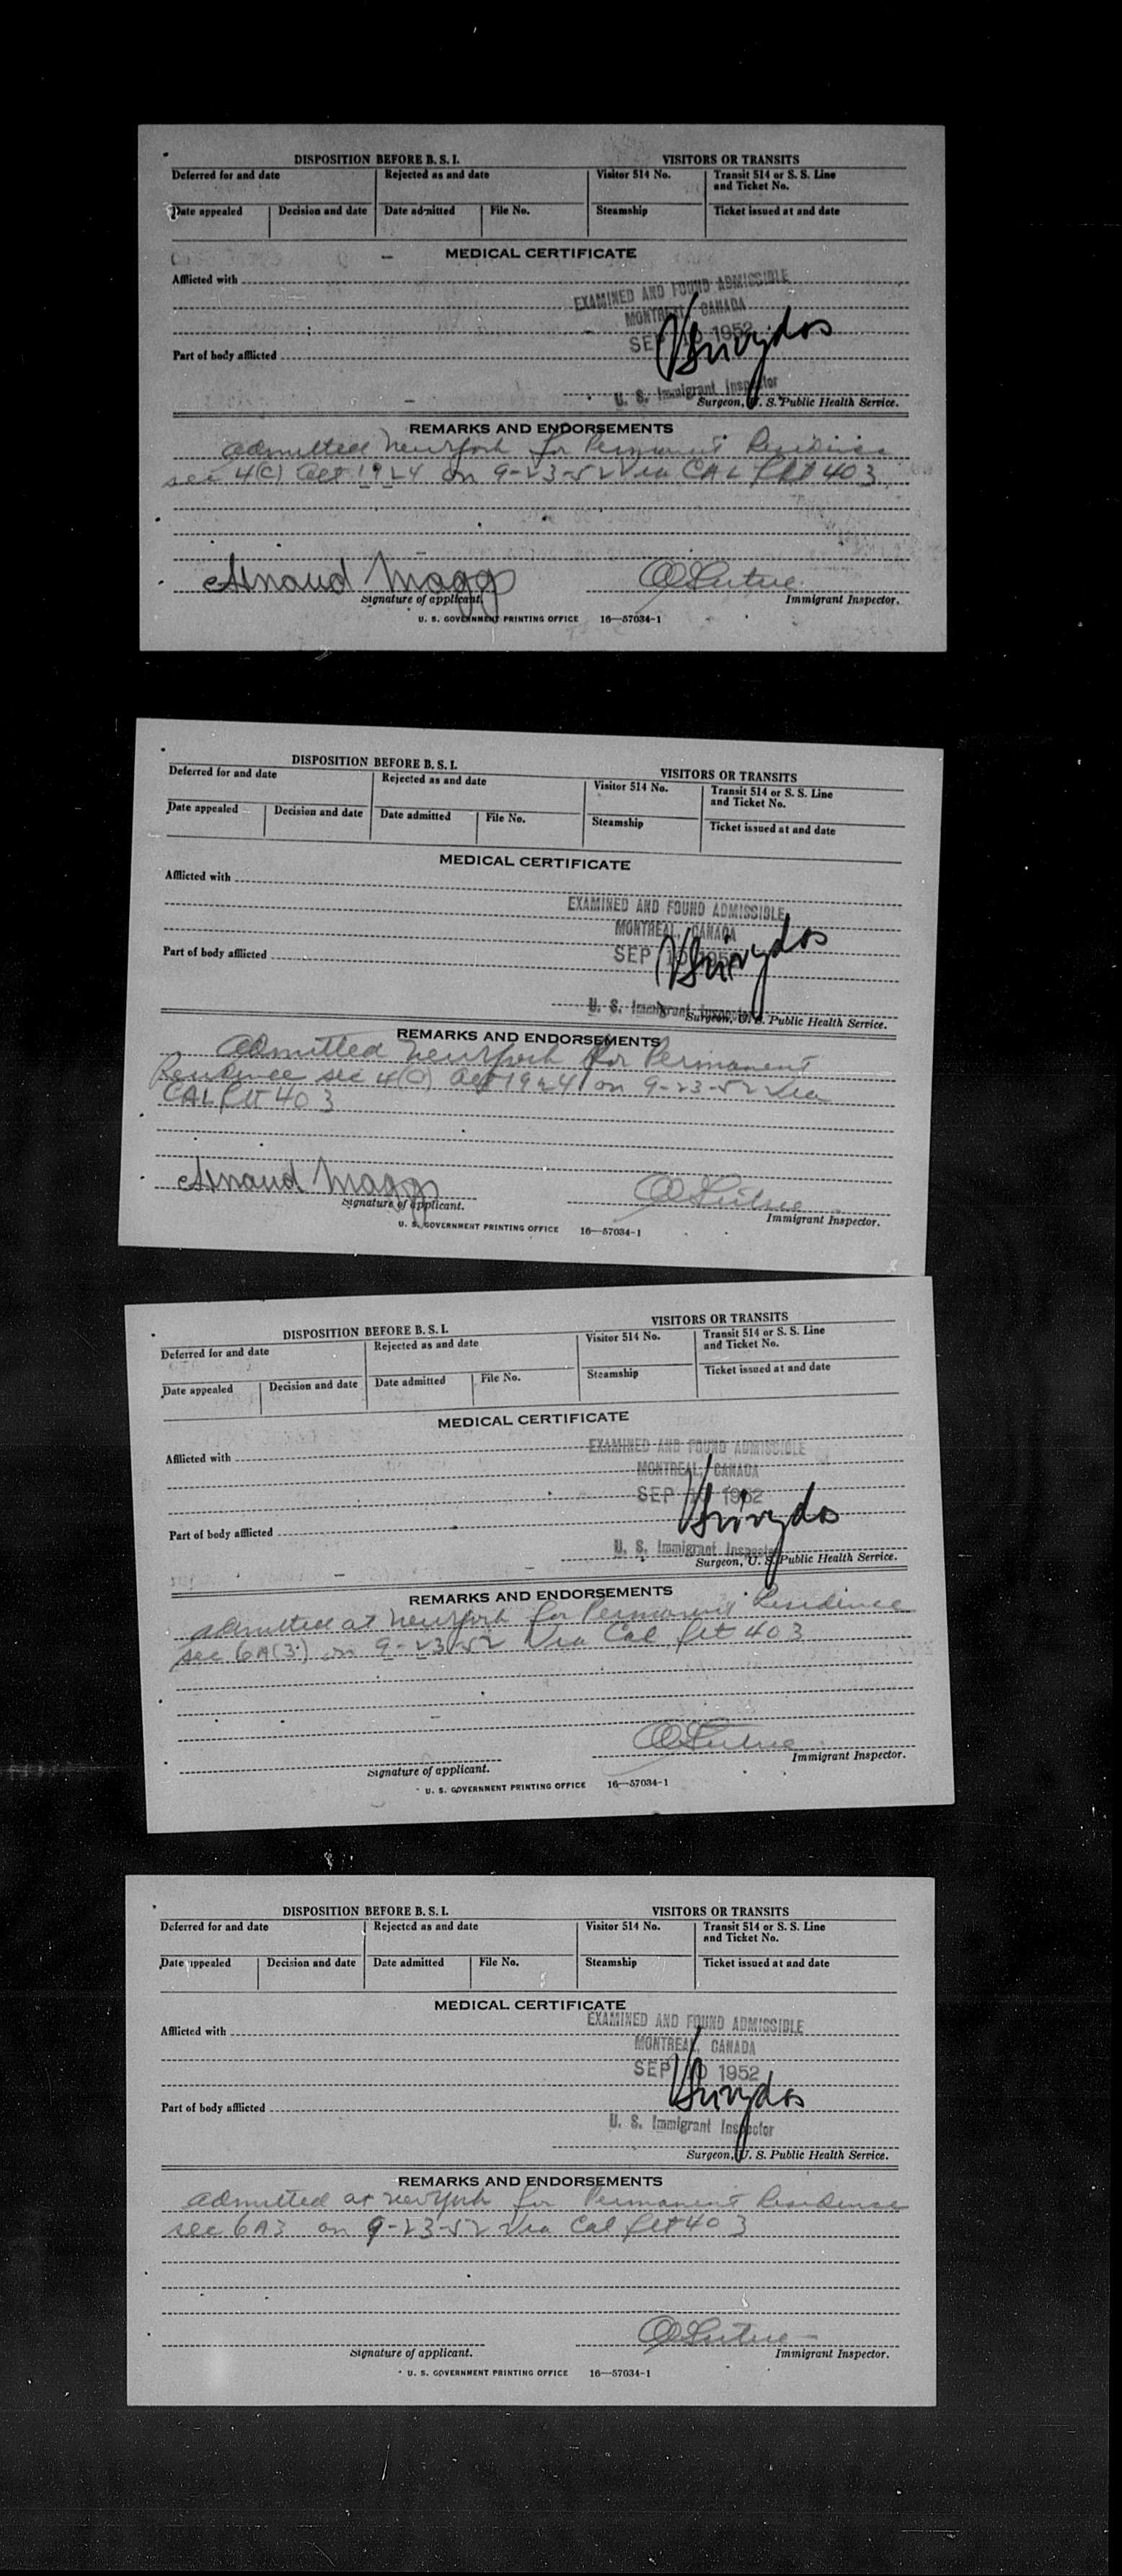 DISPOSITION BEFORE B. S. I. VISITORS OR TRANSITS
Deferred for and date Rejected as and date Visitor 514 No. Transit 514 or S. S. Line and Ticket No.
Date appealed Decision and date Date admitted File No. Steamship Ticket issued at and date
MEDICAL CERTIFICATE
Afflicted with
EXAMINED AND FOUND ADMISSIBLE
MONTREAL, CANADA
SEP 1952
Part of body afflicted
U. S. Immigrant Inspector
Surgeon, U. S. Public Health Service.
REMARKS AND ENDORSEMENTS
admitted New York for Permanent Residence
sec 4(C) act 1924 on 9-23-52 via CAL flt 403
Arnaud Maggs
Signature of applicant. Immigrant Inspector.
U. S. GOVERNMENT PRINTING OFFICE 16—57034-1
DISPOSITION BEFORE B. S. I. VISITORS OR TRANSITS
Deferred for and date Rejected as and date Visitor 514 No. Transit 514 or S. S. Line and Ticket No.
Date appealed Decision and date Date admitted File No. Steamship Ticket issued at and date
MEDICAL CERTIFICATE
Afflicted with
EXAMINED AND FOUND ADMISSIBLE
MONTREAL, CANADA
SEP 10 1952
Part of body afflicted
U. S. Immigrant Inspector
Surgeon, U. S. Public Health Service.
REMARKS AND ENDORSEMENTS
admitted New York for Permanent
Residence sec 4(C) act 1924 on 9-23-52 via
CAL flt 403
Arnaud Maggs
Signature of applicant. Immigrant Inspector.
U. S. GOVERNMENT PRINTING OFFICE 16—57034-1
DISPOSITION BEFORE B. S. I. VISITORS OR TRANSITS
Deferred for and date Rejected as and date Visitor 514 No. Transit 514 or S. S. Line and Ticket No.
Date appealed Decision and date Date admitted File No. Steamship Ticket issued at and date
MEDICAL CERTIFICATE
Afflicted with
EXAMINED AND FOUND ADMISSIBLE
MONTREAL, CANADA
SEP 1952
Part of body afflicted
U. S. Immigrant Inspector
Surgeon, U. S. Public Health Service.
REMARKS AND ENDORSEMENTS
admitted at New York for Permanent Residence
sec 6A(3) on 9-23-52 via Cal flt 403
Signature of applicant. Immigrant Inspector.
U. S. GOVERNMENT PRINTING OFFICE 16—57034-1
DISPOSITION BEFORE B. S. I. VISITORS OR TRANSITS
Deferred for and date Rejected as and date Visitor 514 No. Transit 514 or S. S. Line and Ticket No.
Date appealed Decision and date Date admitted File No. Steamship Ticket issued at and date
MEDICAL CERTIFICATE
EXAMINED AND FOUND ADMISSIBLE
Afflicted with
MONTREAL, CANADA
SEP 10 1952
Part of body afflicted
U. S. Immigrant Inspector
Surgeon, U. S. Public Health Service.
REMARKS AND ENDORSEMENTS
admitted at New York for Permanent Residence
sec 6A3 on 9-23-52 via Cal flt 403
Signature of applicant. Immigrant Inspector.
U. S. GOVERNMENT PRINTING OFFICE 16—57034-1